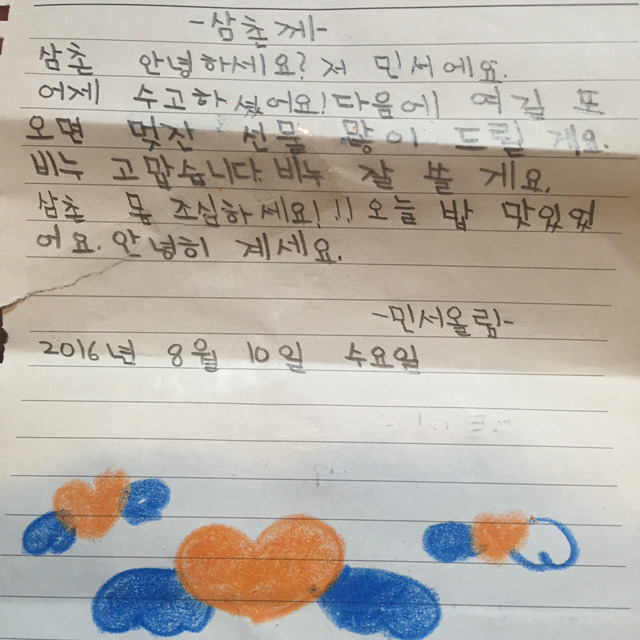 -삼촌께-
삼촌 안녕하세요? 저 민서에요.
어제 수고하셨어요! 다음에 여길 또
오면 멋잔 선물 많이 드릴 게요.
비누 고맙습니다. 비누 잘 쓸 게요.
삼촌 목 조심하세요!!! 오늘 밥 맛있었
어요. 안녕히 계세요.
-민서올림-
2016년 8월 10일 수요일